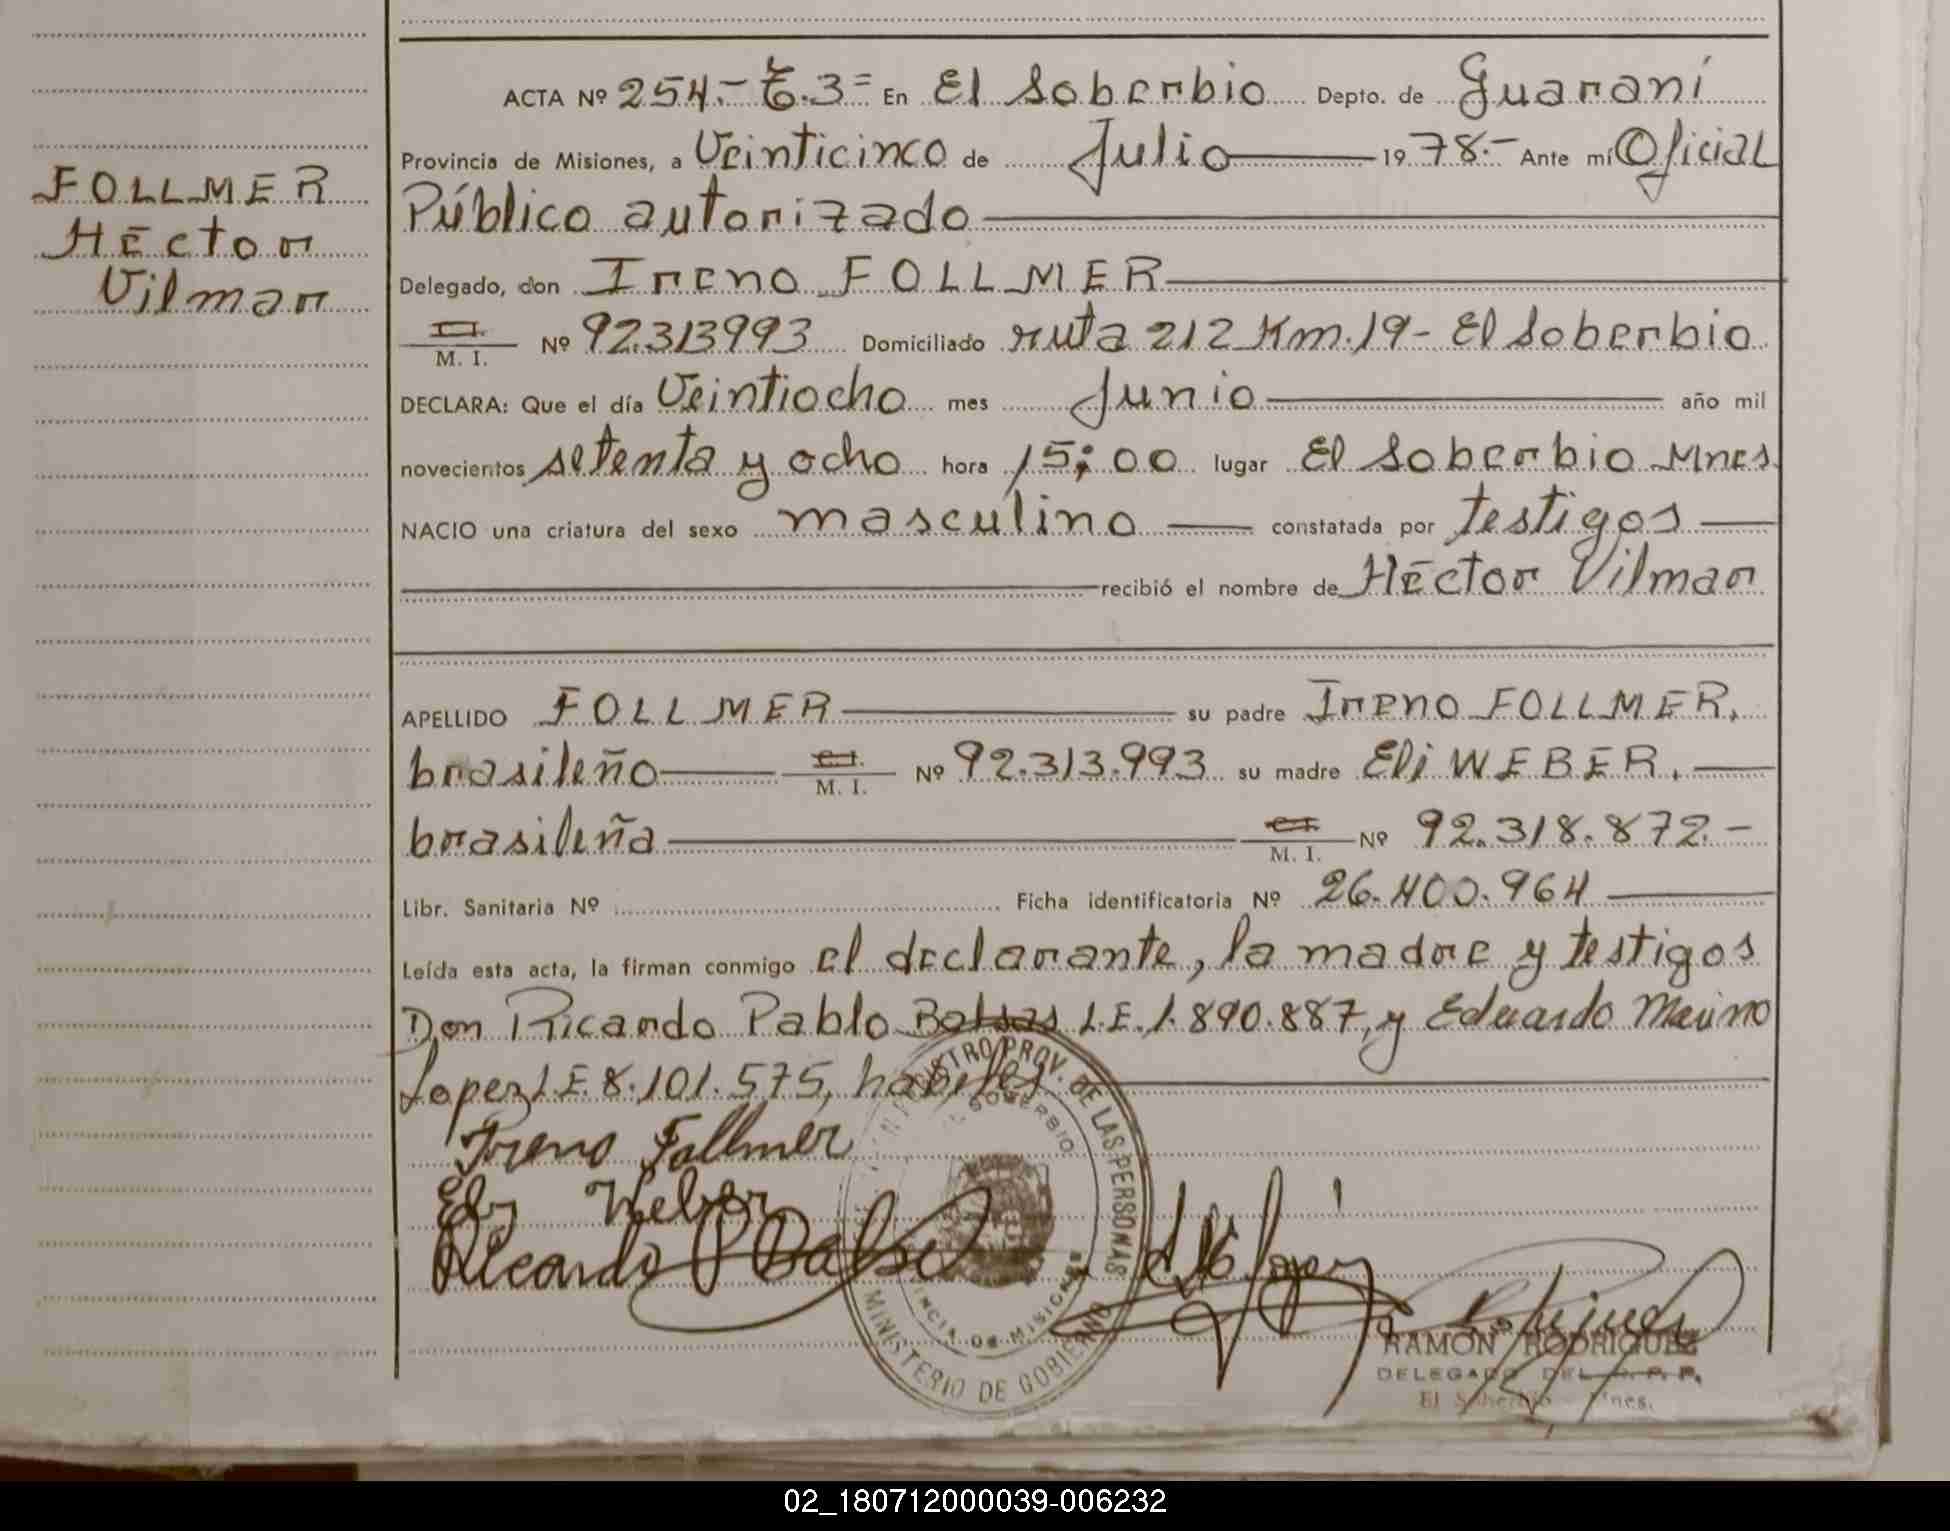 FOLLMER
Héctor
Vilmar
ACTA Nº 254.- T.3= En El Soberbio Depto. de Guaraní
Provincia de Misiones, a Veinticinco de Julio 19 78.- Ante mí Oficial
Público autorizado
Delegado, don Ireno FOLLMER
M. I. Nº 92.313993 Domiciliado ruta 212 Km.19- El Soberbio
DECLARA: Que el día Veintiocho mes Junio año mil
novecientos setenta y ocho hora 15:00 lugar El Soberbio Mnes.
NACIO una criatura del sexo masculino constatada por testigos
recibió el nombre de Héctor Vilmar
APELLIDO FOLLMER su padre Ireno FOLLMER,
brasileño M. I. Nº 92.313.993 su madre Eli WEBER,
brasileña M. I. Nº 92.318.872.-
Libr. Sanitaria Nº Ficha identificatoria Nº 26.400.964
Leída esta acta, la firman conmigo el declarante, la madre y testigos
Don Ricardo Pablo Balsas L.E. 1.890.887, y Eduardo Marino
Lopez L.E. 8.101.575, habiles
Ireno Follmer
Weber
Ricardo P Balsa
REGISTRO PROV. DE LAS PERSONAS
EL SOBERBIO
PROVINCIA DE MISIONES
MINISTERIO DE GOBIERNO
RAMON RODRIGUEZ
DELEGADO DEL R. P. P.
El Soberbio - Mnes.
02_180712000039-006232